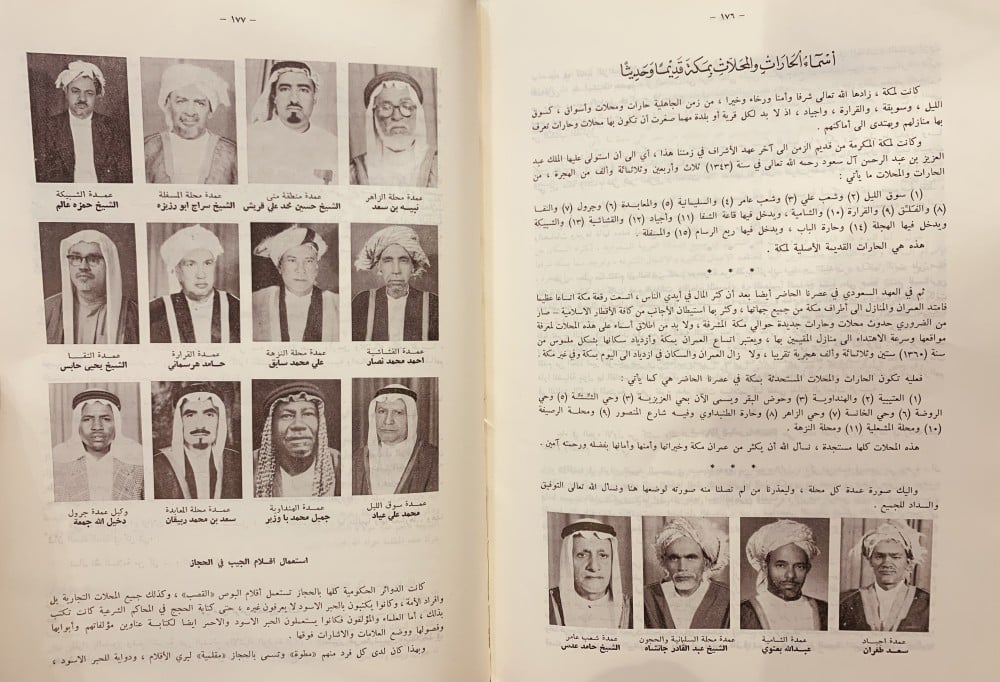 — ١٧٦ —
أسماء الحارات والمحلات بمكة قديماً وحديثاً
كانت لمكة ، زادها الله تعالى شرفا وأمنا ورخاء وخيرا ، من زمن الجاهلية حارات ومحلات وأسواق ، كسوق
الليل ، وسويقة ، والقرارة ، واجياد ، اذ لا بد لكل قرية أو بلدة مهما صغرت أن تكون بها محلات وحارات تعرف
بها منازلهم ويهتدى الى أماكنهم .
وكانت لمكة المكرمة من قديم الزمن الى آخر عهد الأشراف في زمننا هذا ، أي الى ان استولى عليها الملك عبد
العزيز بن عبد الرحمن آل سعود رحمه الله تعالى في سنة (١٣٤٣) ثلاث وأربعين وثلاثمائة وألف من الهجرة ، من
الحارات والمحلات ما يأتي :
(١) سوق الليل (٢) وشعب علي (٣) وشعب عامر (٤) والسليمانية (٥) والمعابدة (٦) وجرول (٧) والنقا
(٨) والفلق (٩) والقرارة (١٠) والشامية ، ويدخل فيها قاعة الشفا (١١) وأجياد (١٢) والقشاشية (١٣) والشبيكة
ويدخل فيها الهجلة (١٤) وحارة الباب ، ويدخل فيها ربع الرسام (١٥) والمسفلة .
هذه هي الحارات القديمة الأصلية لمكة .
* * *
ثم في العهد السعودي في عصرنا الحاضر أيضا بعد أن كثر المال في أيدي الناس ، اتسعت رقعة مكة اتساعا عظيما
فامتد العمران والمنازل الى أطراف مكة من جميع جهاتها ، وكثر بها استيطان الأجانب من كافة الأقطار الاسلامية – صار
من الضروري حدوث محلات وحارات جديدة حوالي مكة المشرفة ، ولا بد من اطلاق أسماء على هذه المحلات لمعرفة
مواقعها وسرعة الاهتداء الى منازل المقيمين بها ، ويعتبر اتساع العمران بمكة وازدياد سكانها بشكل ملموس من
سنة (١٣٦٠) ستين وثلاثمائة وألف هجرية تقريبا ، ولا زال العمران والسكان في ازدياد الى اليوم بمكة وفي غير مكة .
فعليه تكون الحارات والمحلات المستحدثة بمكة في عصرنا الحاضر هي كما يأتي :
(١) العتيبية (٢) والهنداوية (٣) وحوض البقر ويسمى الآن بحي العزيزية (٣) وحي (٥) وحي
الروضة (٦) وحي الخانسة (٧) وحي الزاهر (٨) وحارة الطنبداوي وفيه شارع المنصور (٩) ومحلة الرصيفة
(١٠) ومحلة المشعلية (١١) ومحلة النزهة .
هذه المحلات كلها مستجدة ، نسأل الله أن يكثر من عمران مكة وخيراتها وأمنها وأمانها بفضله ورحمته آمين .
* * *
واليك صورة عمدة كل محلة ، وليعذرنا من لم تصلنا منه صورته لوضعها هنا ونسأل الله تعالى التوفيق
والسداد للجميع .
عمدة اجياد
سعد ظفران
عمدة الشامية
عبدالله بعنوي
عمدة محلة السليمانية والحجون
الشيخ عبد القادر جانشاه
عمدة شعب عامر
الشيخ حامد عدس
— ١٧٧ —
عمدة محلة الزاهر
نييبه بن سعد
عمدة منطقة منى
الشيخ حسين محمد علي قريش
عمدة محلة المسفلة
الشيخ سراج ابو رزيزه
عمدة الشبيكة
الشيخ حمزه عالم
عمدة القشاشية
احمد محمد نصار
عمدة محلة النزهة
علي محمد سابق
عمدة القرارة
حامد هرساني
عمدة النقا
الشيخ يحيى حابس
عمدة سوق الليل
محمد علي عياد
عمدة الهنداوية
جميل محمد با وزير
عمدة محلة المعابدة
سعد بن محمد ريبقان
وكيل عمدة جرول
دخيل الله جمعة
استعمال اقلام الجيب في الحجاز
كانت الدوائر الحكومية كلها بالحجاز تستعمل أقلام البوص «القصب» ، وكذلك جميع المحلات التجارية بل
وافراد الأمة ، وكانوا يكتبون بالحبر الاسود لا يعرفون غيره ، حتى كتابة الحجج في المحاكم الشرعية كانت تكتب
بذلك ، أما العلماء والمؤلفون فكانوا يستعملون الحبر الاسود والاحمر ايضا لكتابة عناوين مؤلفاتهم وأبوابها
وفصولها ووضع العلامات والاشارات فوقها .
وبهذا كان لدى كل فرد منهم «مطوة» وتسمى بالحجاز «مقلمية» لبري الأقلام ، ودواية للحبر الاسود ،